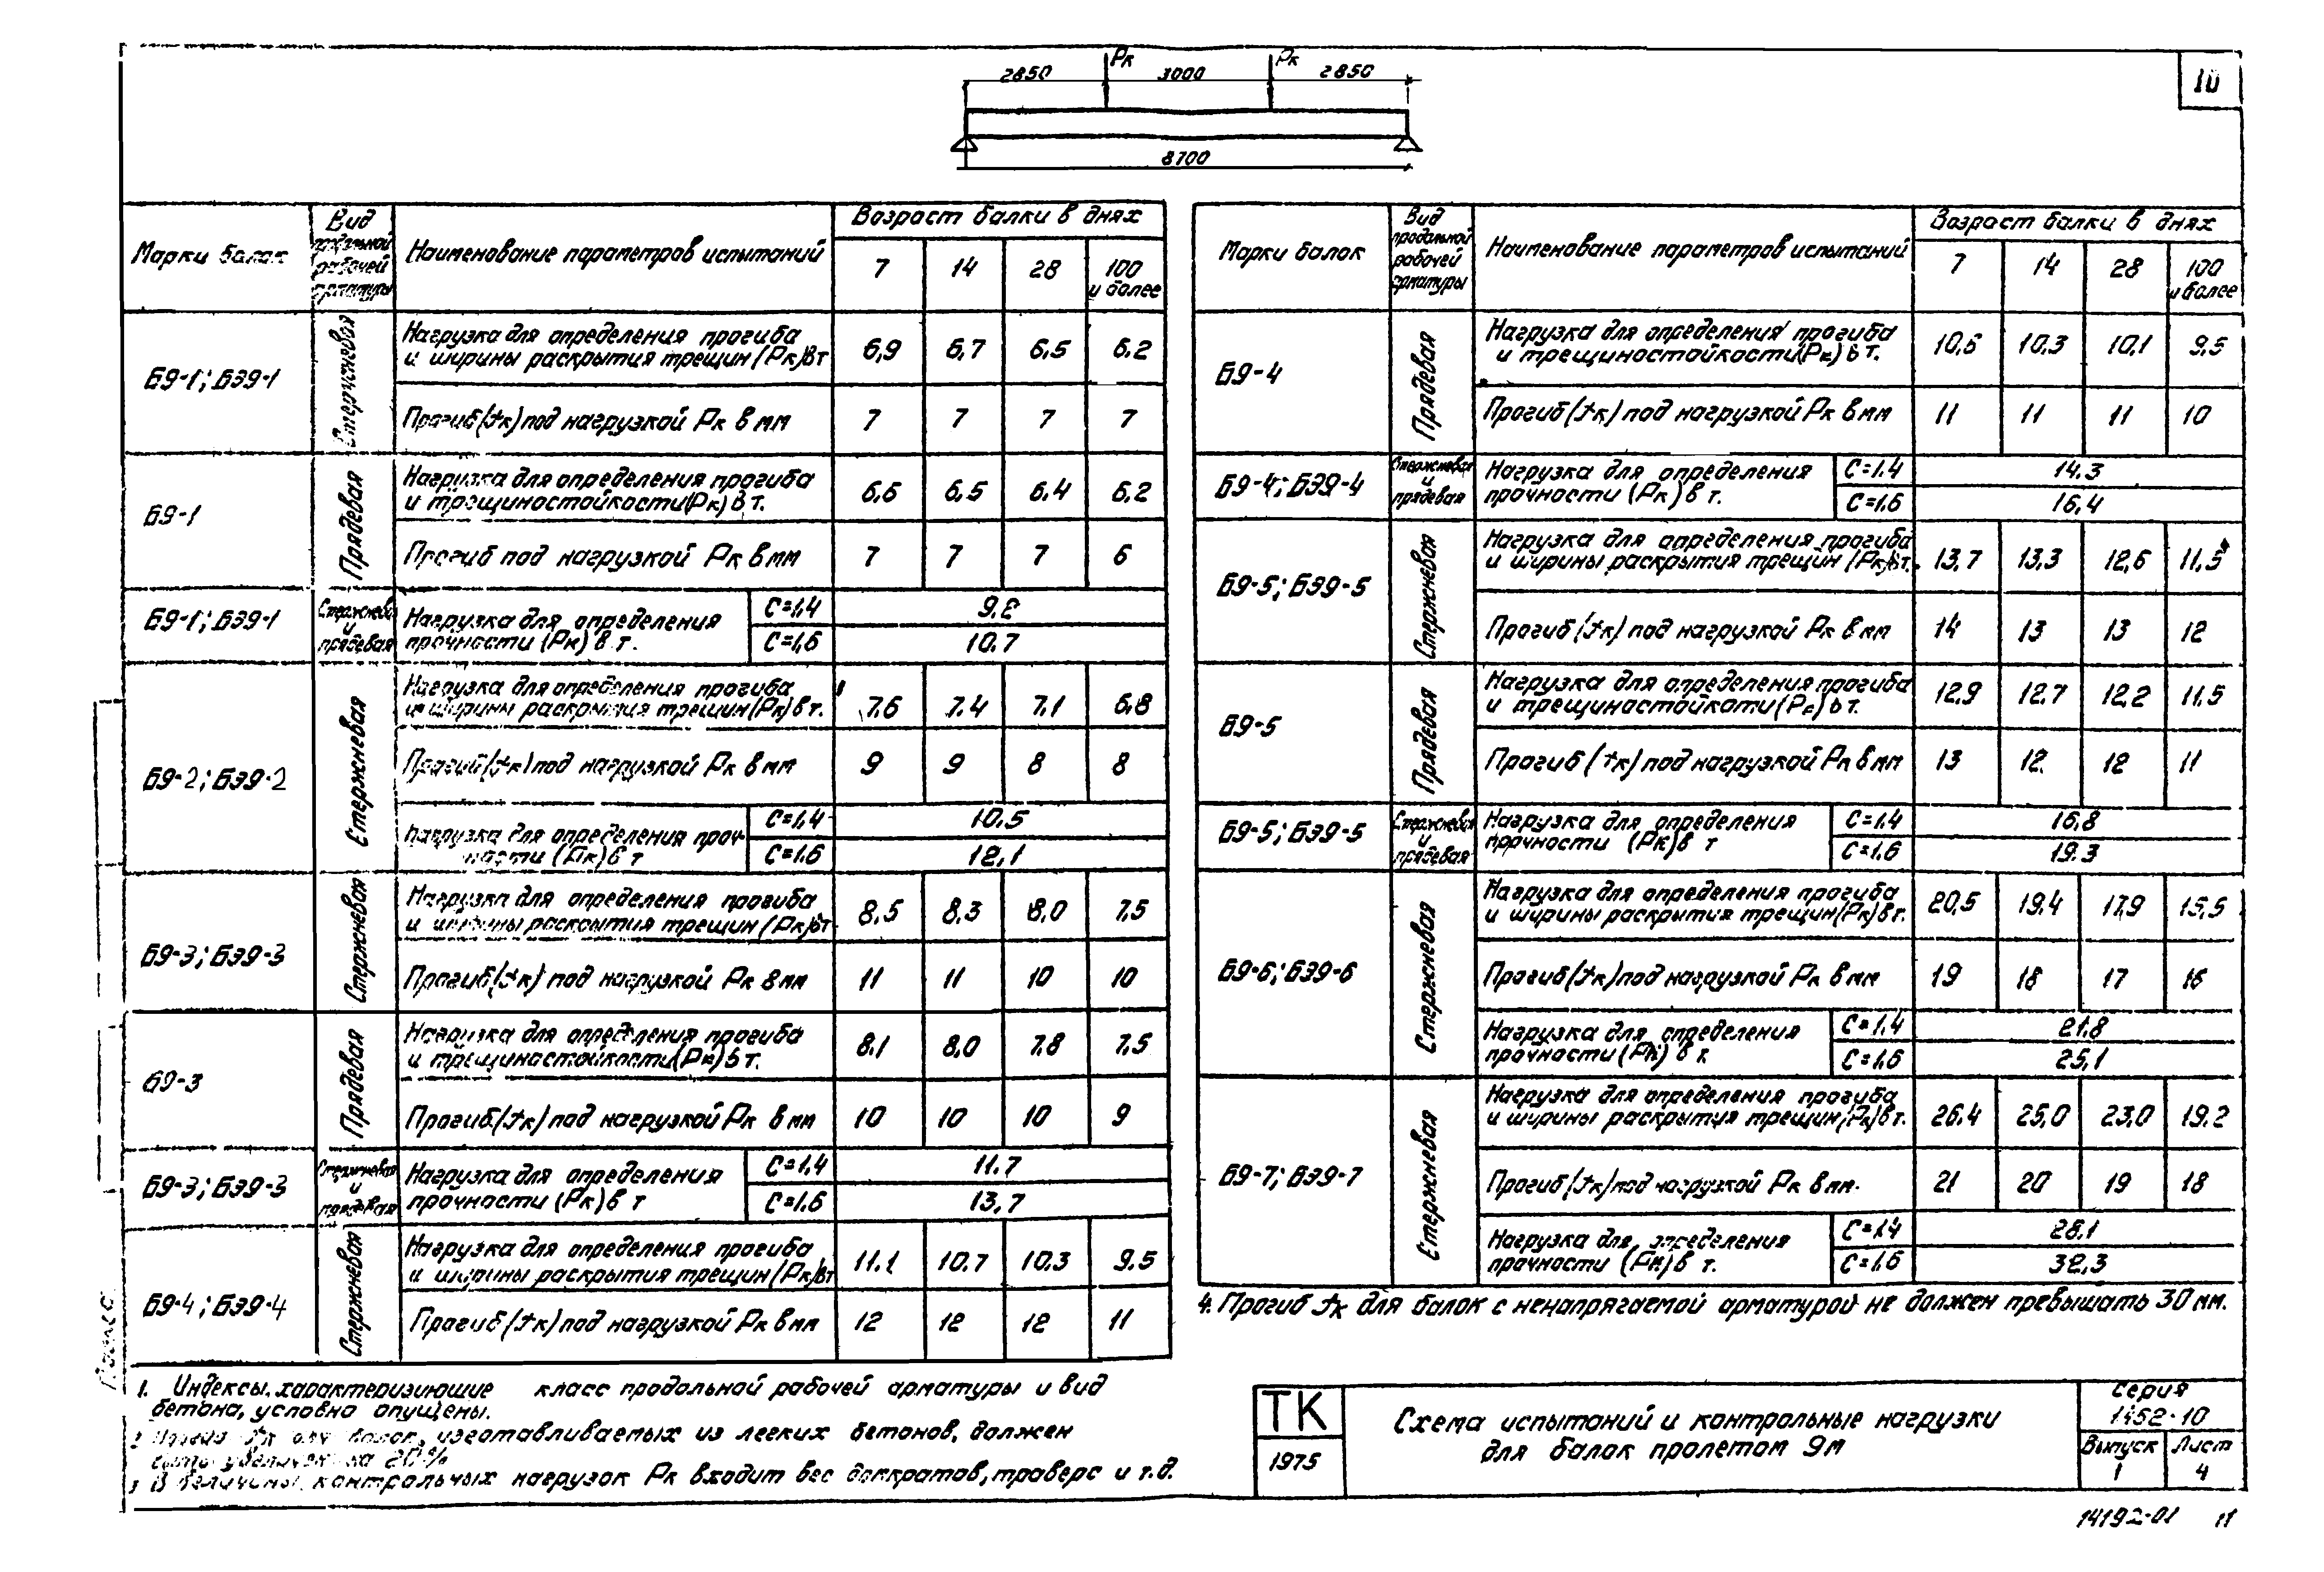 10
2850 Рк 3000 Рк 2850
8700
Марки балок
Вид
продольной
рабочей
арматуры
Наименование параметров испытаний
Возраст балки в днях
7 14 28 100
и более
Б9-1; БЭ9-1
Стержневая
Нагрузка для определения прогиба
и ширины раскрытия трещин (Рк) в т
6,9 6,7 6,5 6,2
Прогиб (fк) под нагрузкой Рк в мм
7 7 7 7
Б9-1
Прядевая
Нагрузка для определения прогиба
и трещиностойкости (Рк) в т.
6,6 6,5 6,4 6,2
Прогиб под нагрузкой Рк в мм
7 7 7 6
Б9-1; БЭ9-1
Стержнева
и
прядевая
Нагрузка для определения
прочности (Рк) в т.
С=1,4
С=1,6 10,7
Б9-2; БЭ9-2
Стержневая
Нагрузка для определения прогиба
и ширины раскрытия трещин (Рк) в т.
7,6 7,4 7,1 6,8
Прогиб (fк) под нагрузкой Рк в мм
9 9 8 8
Нагрузка для определения проч-
ности (Рк) в т
С=1,4 10,5
С=1,6 12,1
Б9-3; БЭ9-3
Стержневая
Нагрузка для определения прогиба
и ширины раскрытия трещин (Рк) в т
8,5 8,3 8,0 7,5
Прогиб (fк) под нагрузкой Рк в мм
11 11 10 10
Б9-3
Прядевая
Нагрузка для определения прогиба
и трещиностойкости (Рк) в т.
8,1 8,0 7,8 7,5
Прогиб (fк) под нагрузкой Рк в мм
10 10 10 9
Б9-3; БЭ9-3
Стержневая
и
прядевая
Нагрузка для определения
прочности (Рк) в т
С=1,4 11,7
С=1,6 13,7
Б9-4; БЭ9-4
Стержневая
Нагрузка для определения прогиба
и ширины раскрытия трещин (Рк) в т
11,1 10,7 10,3 9,5
Прогиб (fк) под нагрузкой Рк в мм
12 12 12 11
1. Индексы, характеризующие класс продольной рабочей арматуры и вид
бетона, условно опущены.
2 Прогиб fк для балок, изготавливаемых из легких бетонов, должен
быть увеличен на 20%
3 В величины контрольных нагрузок Рк входит вес домкратов, траверс и т.д.
Марки балок
Вид
продольной
рабочей
арматуры
Наименование параметров испытаний
Возраст балки в днях
7 14 28 100
и более
Б9-4
Прядевая
Нагрузка для определения прогиба
и трещиностойкости (Рк) в т.
10,6 10,3 10,1 9,5
Прогиб (fк) под нагрузкой Рк в мм
11 11 11 10
Б9-4; БЭ9-4
Стержневая
и
прядевая
Нагрузка для определения
прочности (Рк) в т.
С=1,4 14,3
С=1,6 16,4
Б9-5; БЭ9-5
Стержневая
Нагрузка для определения прогиба
и ширины раскрытия трещин (Рк) в т.
13,7 13,3 12,6 11,5
Прогиб (fк) под нагрузкой Рк в мм
14 13 13 12
Б9-5
Прядевая
Нагрузка для определения прогиба
и трещиностойкости (Рк) в т.
12,9 12,7 12,2 11,5
Прогиб (fк) под нагрузкой Рк в мм
13 12 12 11
Б9-5; БЭ9-5
Стержневая
и
прядевая
Нагрузка для определения
прочности (Рк) в т
С=1,4 16,8
С=1,6 19,3
Б9-6; БЭ9-6
Стержневая
Нагрузка для определения прогиба
и ширины раскрытия трещин (Рк) в т.
20,5 19,4 17,9 15,5
Прогиб (fк) под нагрузкой Рк в мм
19 18 17 16
Нагрузка для определения
прочности (Рк) в т.
С=1,4 21,8
С=1,6 25,1
Б9-7; БЭ9-7
Стержневая
Нагрузка для определения прогиба
и ширины раскрытия трещин (Рк) в т.
26,4 25,0 23,0 19,2
Прогиб (fк) под нагрузкой Рк в мм.
21 20 19 18
Нагрузка для определения
прочности (Рк) в т.
С=1,4 28,1
С=1,6 32,3
4. Прогиб fк для балок с ненапрягаемой арматурой не должен превышать 30 мм.
ТК
1975
Схема испытаний и контрольные нагрузки
для балок пролетом 9м
Серия
1452-10
Выпуск Лист
1 4
14192-01 11